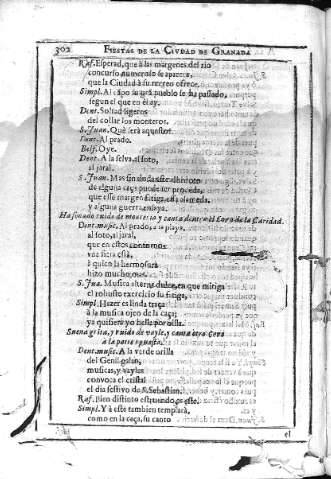 302 FIESTAS DE LA CIVDAD DE GRANADA
Raf. Esperad, que à las margenes del rio
concurso numeroso se aparece,
que la Ciudad à su recreo ofrece.
Simpl. Al cãpo saldrà pueblo se ha passado,
segun el que en èl ay.
Dent. Soltad ligeros
del collar los monteros.
S. Juan. Què serà aquesto?
Dent. Al prado.
Belf. Oye.
Dent. A la selva, al soto,
al jaral.
S. Juan. Mas sin duda este alboroto
de alguna caça puede ser procedа,
que esse margen fatiga, essa alameda,
y alguna guerra ensaya.
Ha sonado ruido de monteria y canta dentro el Coro de la Caridad.
Dent. music. Al prado, a la playa,
al soto, al jaral,
que en estos contornos
una fiera està,
à quien la hermosura
hizo mucho mas.
S. Jua. Musica alterna dulce, en que mitiga
el robusto exercicio su fatiga,
Simpl. Hazer es linda traça
à la musica ojeo de la caça;
ya quisiera yo hallar por orilla.
Suena grita, y ruido de vayle, y canta otro Coro
à la parte opuesta.
Dent. music. A la verde orilla
del Genil galan,
musicas, y vayles
convoca el cristal
el dia festivo de S. Sebastian.
Raf. Bien distinto estruendo es este.
Simpl. Y à este tambien templarà,
como en la caça, su canto
el